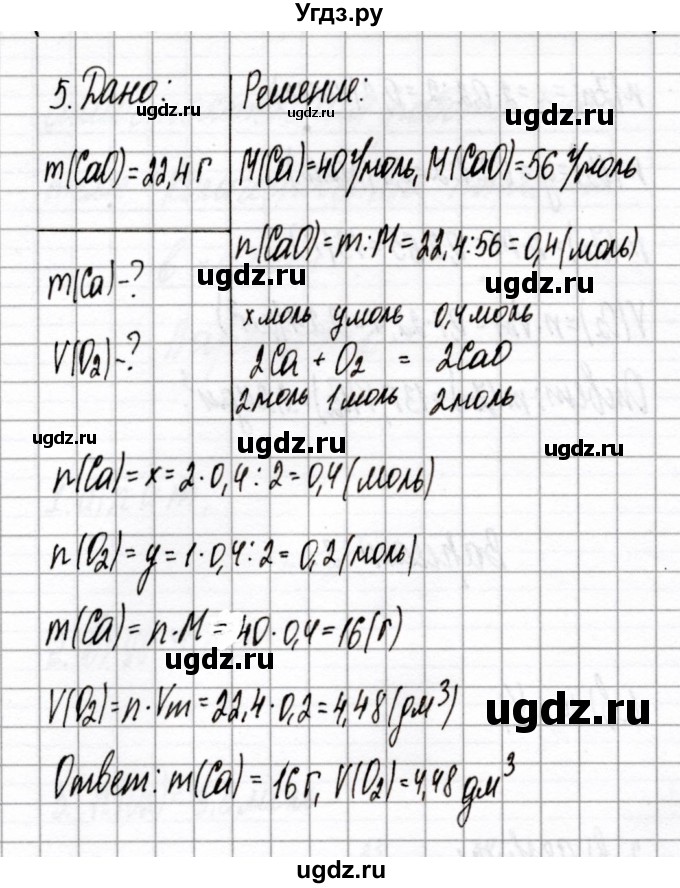 Угдз.ру
5. Дано:
Решение:
ugdz.ru
ugdz.ru
m(CaO)=22,4 г
M(Ca)=40 г/моль, M(CaO)=56 г/моль
ugdz.ru
n(CaO)=m:M=22,4:56=0,4(моль)
ugdz.ru
m(Ca)-?
x моль y моль 0,4 моль
V(O2)-?
2Ca + O2 = 2CaO
ugdz.ru
2 моль 1 моль 2 моль
ugdz.ru
ugdz.ru
ugdz.ru
n(Ca)=x=2·0,4:2=0,4(моль)
ugdz.ru
n(O2)=y=1·0,4:2=0,2(моль)
m(Ca)=n·M=40·0,4=16(г)
ugdz.ru
V(O2)=n·Vm=22,4·0,2=4,48(дм³)
ugdz.ru
Ответ: m(Ca)=16 г, V(O2)=4,48 дм³
ugdz.ru
ugdz.ru